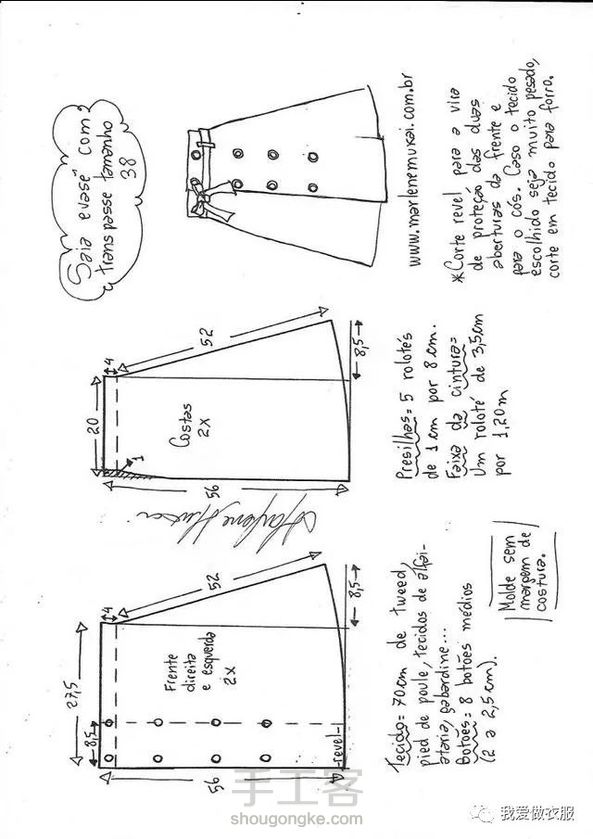 Saia evasê com
transpasse tamanho
38
27,5
8,5
4
52
56
Frente
direita
e esquerda
2x
-revel-
8,5
20
4
1
52
56
Costas
2x
8,5
www.marlenemukai.com.br
Tecido= 70cm de tweed,
pied de poule, tecidos de alfai-
ataria, gabardine...
Botões= 8 botões médios
(2 a 2,5cm).
Molde sem
margem de
costura.
Presilhas= 5 rolotés
de 1cm por 8cm.
Faixa da cintura=
Um roloté de 3,5cm
por 1,20m
*Corte revel para a vira
de proteção das duas
aberturas da frente e
para o cós. Caso o tecido
escolhido seja muito pesado,
corte em tecido para forro.
手工客
shougongke.com
我爱做衣服